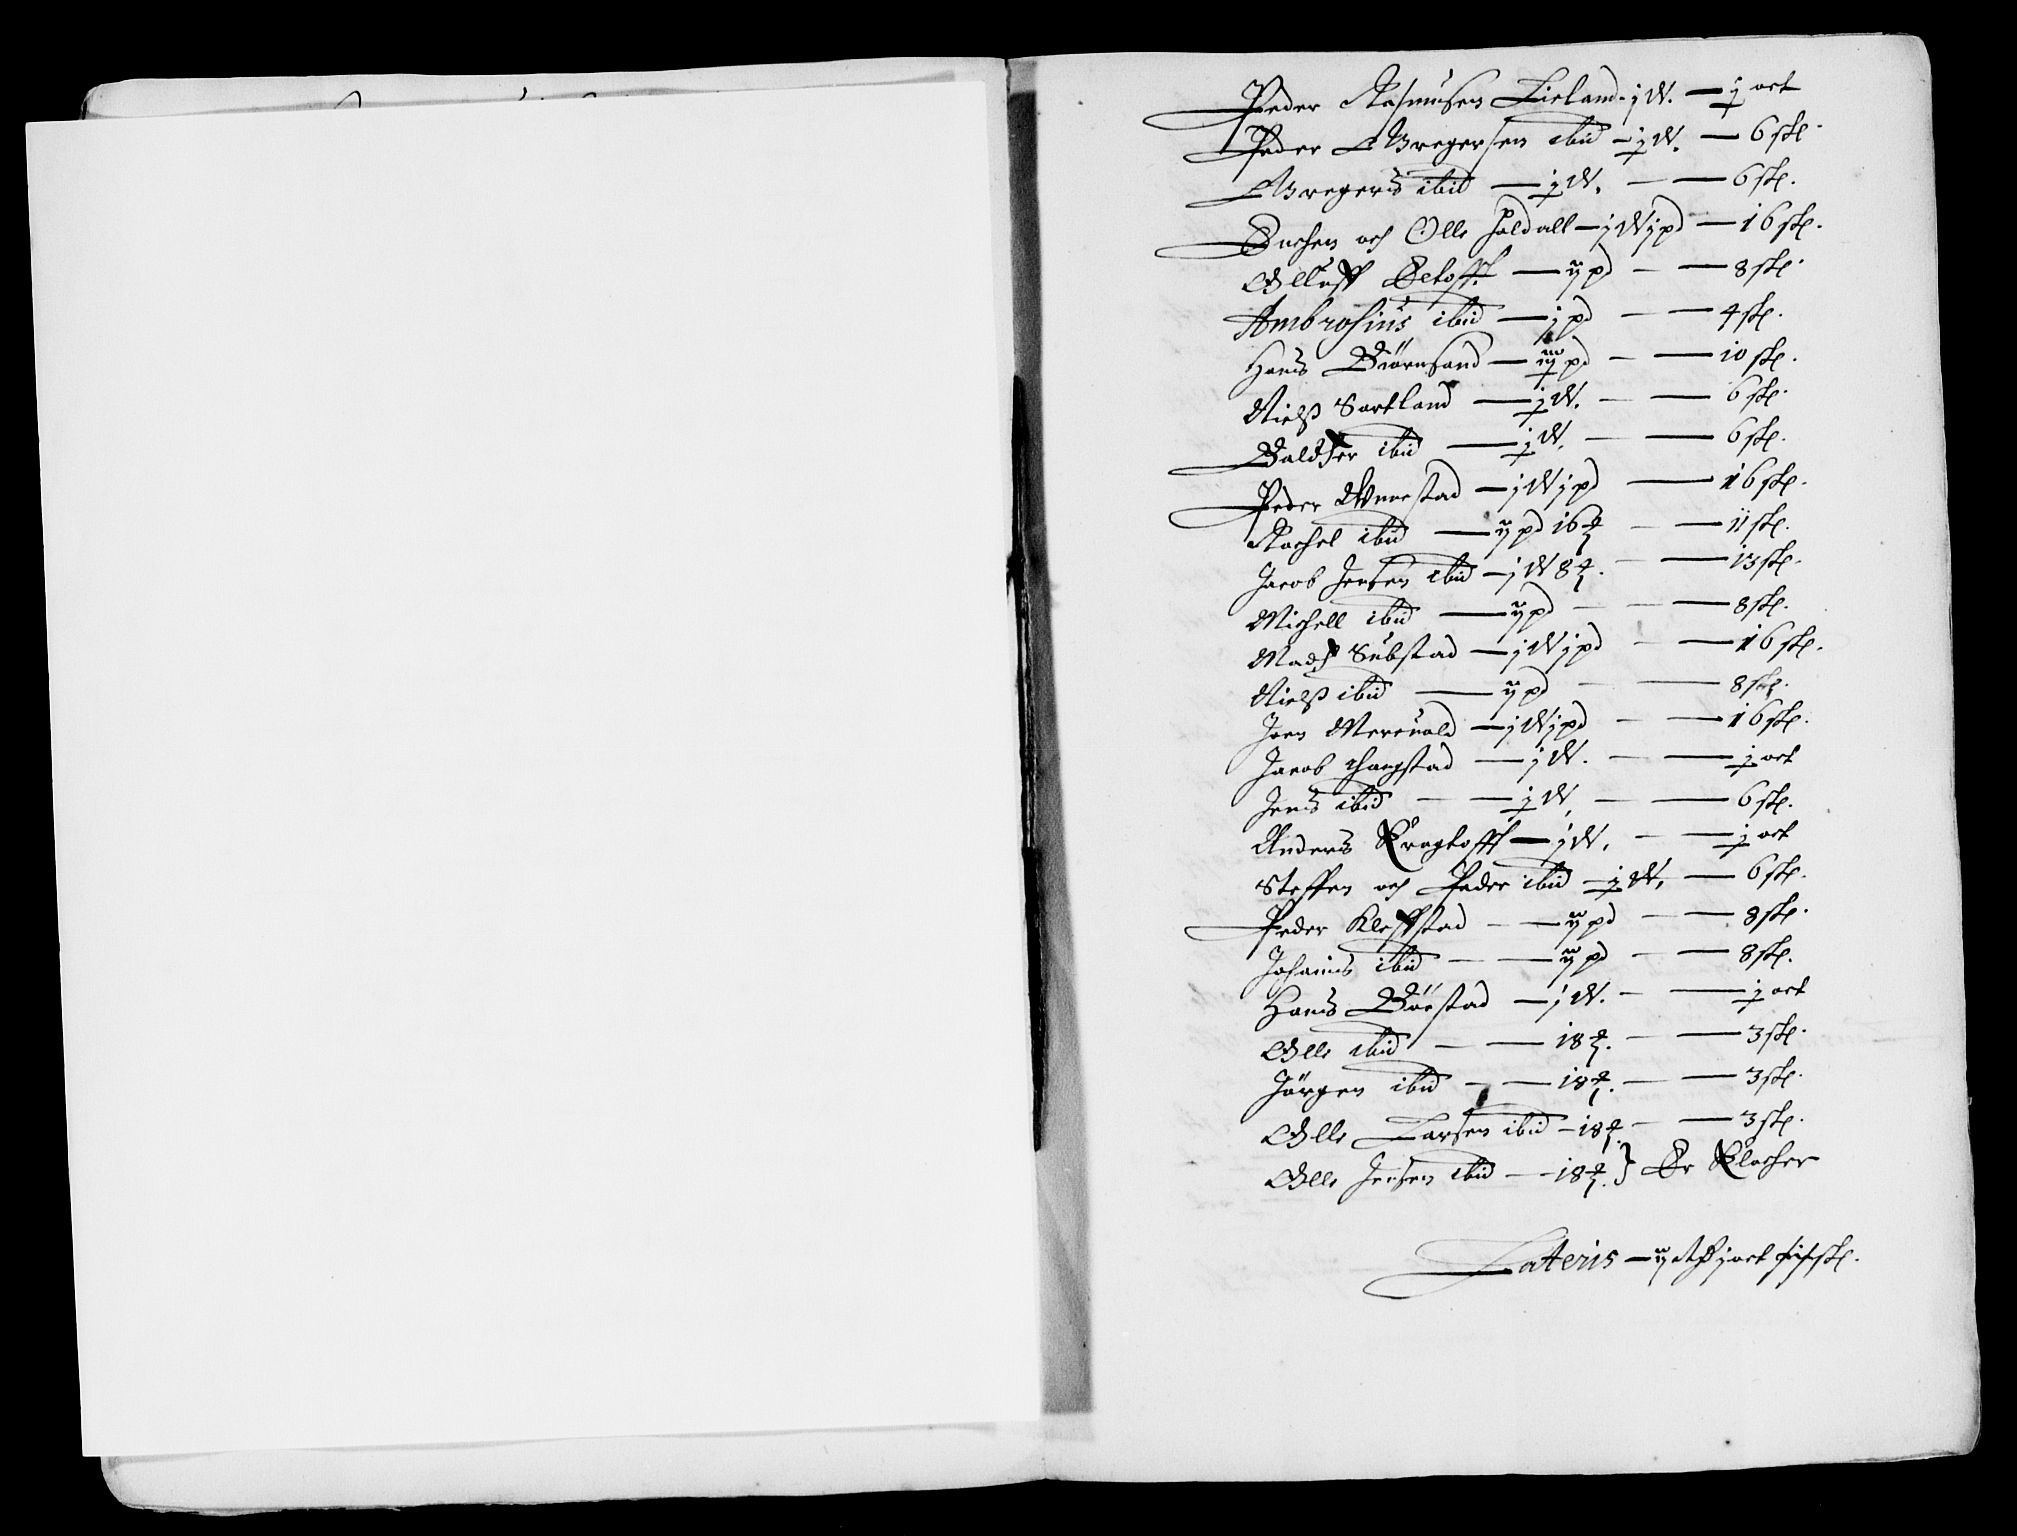 Peder Rasmusen Lieland - j W. — ½ ort
Peder Gregersen ibid — ½ W. — 6 sk.
Gregers ibid — ½ W. — 6 sk.
och Olle — j W j pd — 16 sk.
Olluff — ij pd — 8 sk.
Ambrosius ibid — j pd — 4 sk.
Hans Biörnsand — pd — 10 sk.
Nielß Sortland — ½ W. — 6 sk.
Baldser ibid — ½ W. — 6 sk.
Peder — j W j pd — 16 sk.
Rachel ibid — ij pd 16 — 11 sk.
Jacob Jensen ibid — j W 8 — 13 sk.
Michell ibid — ij pd — 8 sk.
Madz Substad — j W j pd — 16 sk.
Nielß ibid — ij pd — 8 sk.
Joen — j W j pd — 16 sk.
Jacob — j W. — ½ ort
Jens ibid — ½ W. — 6 sk.
Anders Kragtofft — j W. — ½ ort
Steffen och Peder ibid — ½ W. — 6 sk.
Peder Kleffstad — ij pd — 8 sk.
Johannis ibid — ij pd — 8 sk.
Hans Böestad — j W. — ½ ort
Olle ibid — 18 — 3 sk.
Jörgen ibid — 18 — 3 sk.
Olle Larsen ibid — 18 — 3 sk.
Olle Jensen ibid — 18 } Er Klocher
Lateris — ij j ort sk.